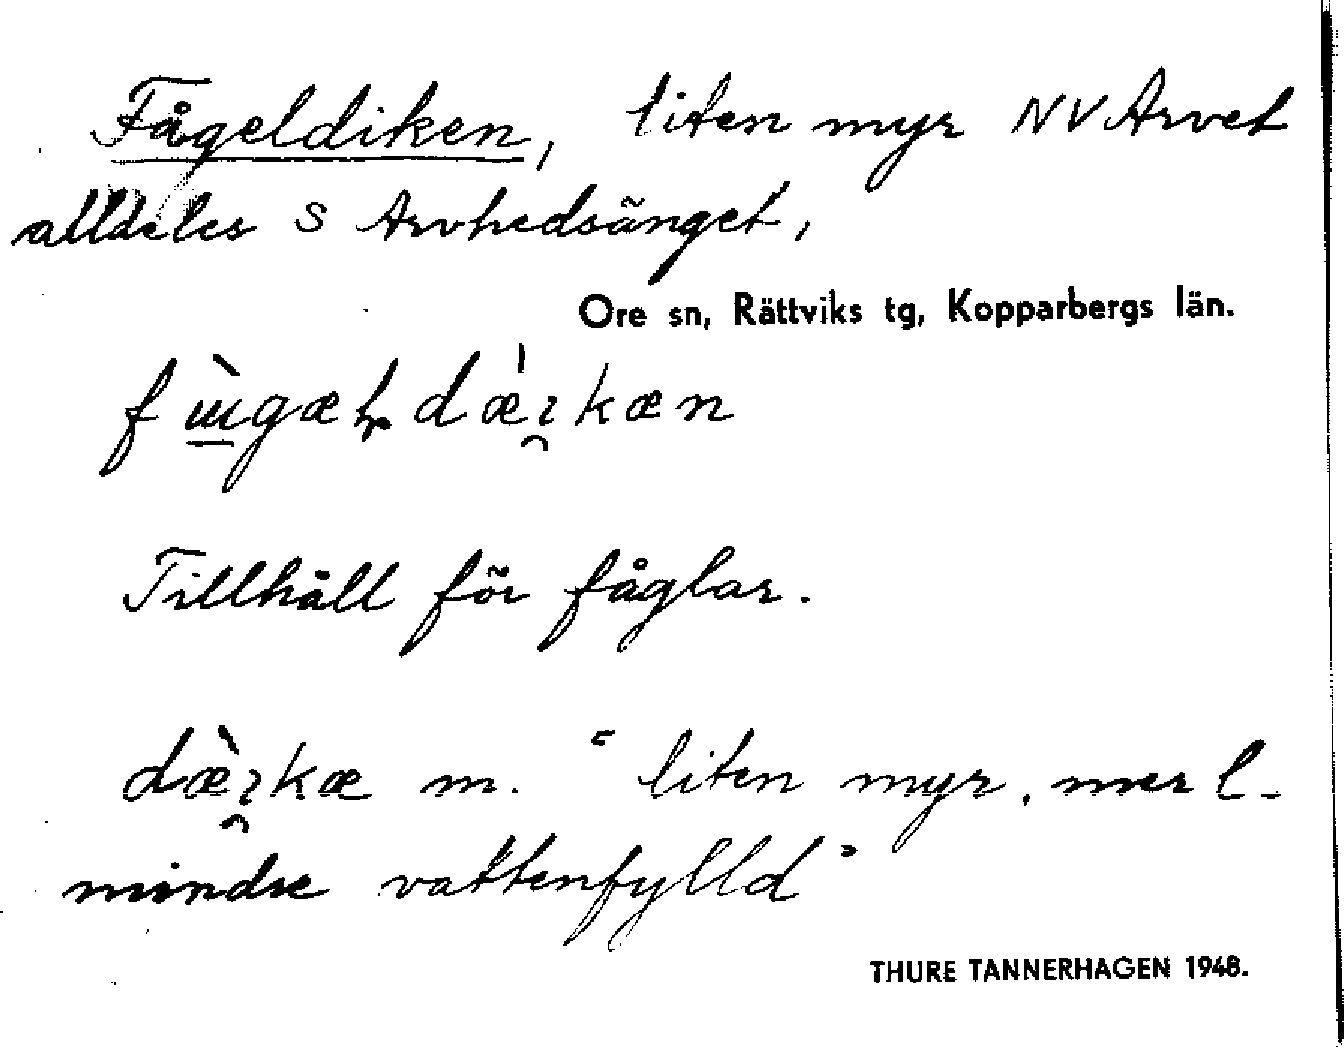 Fågeldiken, liten myr NV Arvet
alldeles S Arvhedsänget,
Ore sn, Rättviks tg, Kopparbergs län.
Tillhåll för fåglar.
m. "liten myr, mer l.
mindre vattenfylld"
THURE TANNERHAGEN 1948.